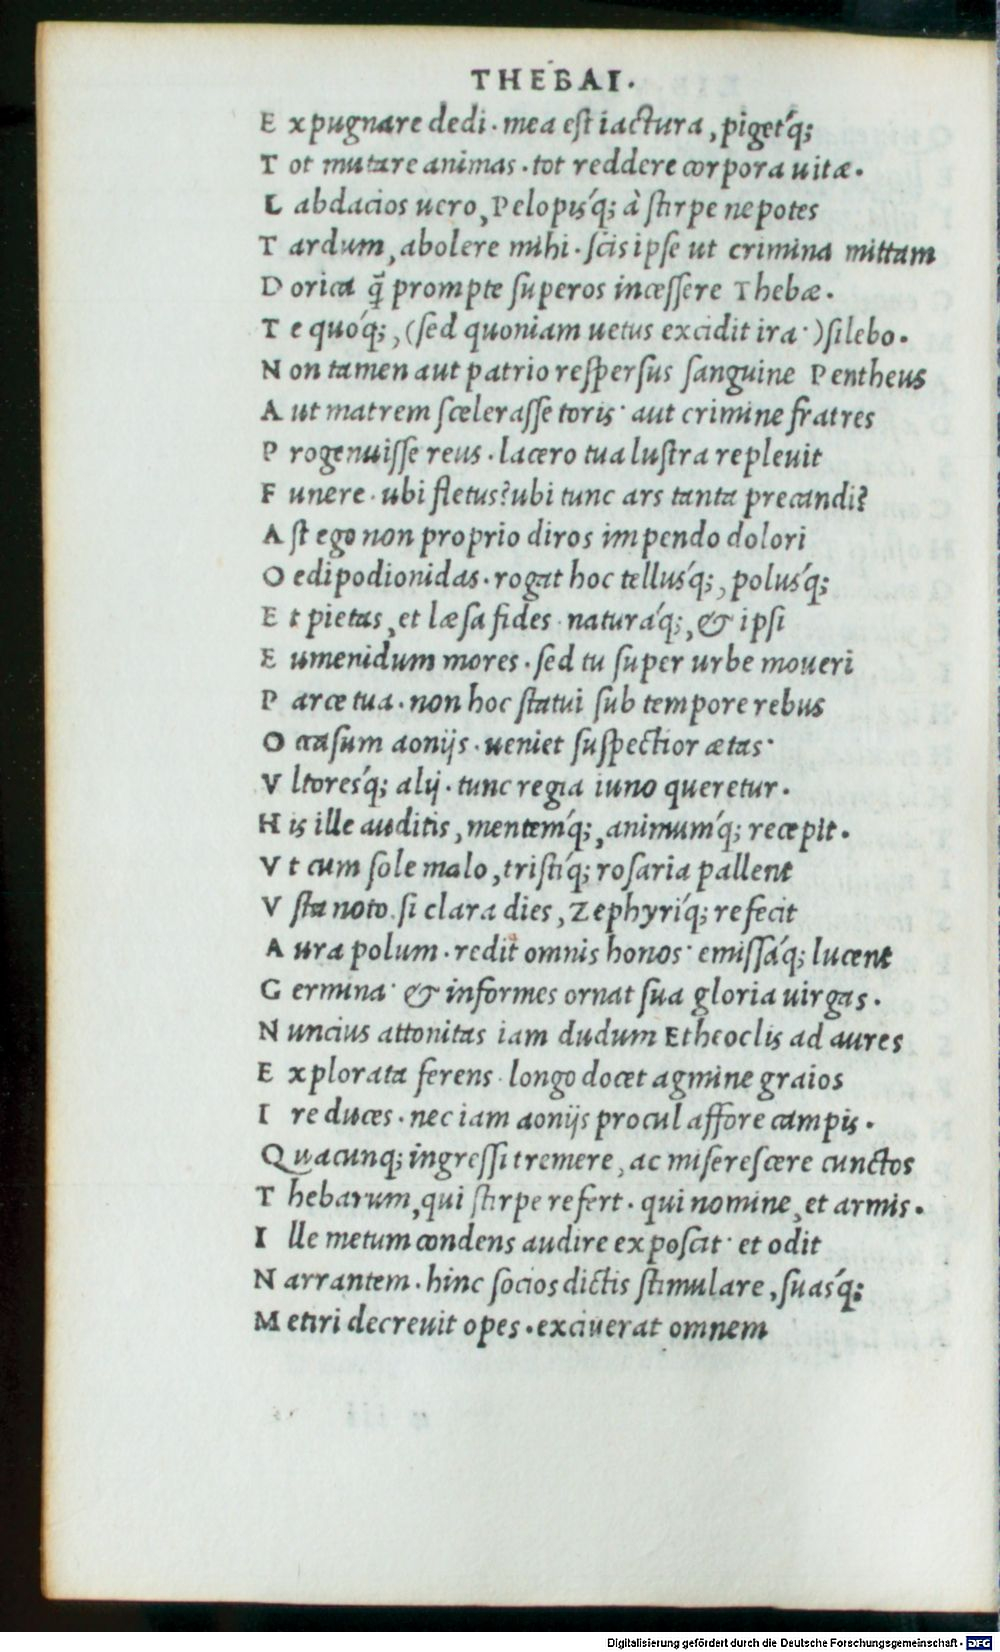 THEBAI.
E xpugnare dedi. mea est iactura, piget'q;
T ot mutare animas. tot reddere corpora uitæ.
L abdacios uero, Pelopis'q; à stirpe nepotes
T ardum, abolere mihi. scis ipse ut crimina mittam
D orica q̃ prompte superos incessere Thebæ.
T e quó'q;, (sed quoniam uetus excidit ira·) silebo.
N on tamen aut patrio respersus sanguine Pentheus
A ut matrem scelerasse toris· aut crimine fratres
P rogenuisse reus. lacero tua lustra repleuit
F unere. ubi fletus? ubi tunc ars tanta precandi?
A st ego non proprio diros impendo dolori
O edipodionidas. rogat hoc tellus'q;, polus'q;
E t pietas, et læsa fides. naturá'q;, & ipsi
E umenidum mores. sed tu super urbe moueri
P arce tua. non hoc statui sub tempore rebus
O ccasum aonijs. ueniet suspectior ætas·
V ltores'q; alij. tunc regia iuno queretur.
H is ille auditis, mentem'q;, animum'q; recepit.
V t cum sole malo, tristi'q; rosaria pallent
V sta noto. si clara dies, Zephyri'q; refecit
A ura polum. redit omnis honos· emissá'q; lucent
G ermina· & informes ornat sua gloria uirgas.
N uncius attonitas iam dudum Etheoclis ad aures
E xplorata ferens. longo docet agmine graios
I re duces. nec iam aonijs procul affore campis.
Quacunq; ingressi tremere, ac miserescere cunctos
T hebarum, qui stirpe refert. qui nomine, et armis.
I lle metum condens audire exposcit· et odit
N arrantem. hinc socios dictis stimulare, suas'q;
M etiri decreuit opes. exciuerat omnem
Digitalisierung gefördert durch die Deutsche Forschungsgemeinschaft - DFG